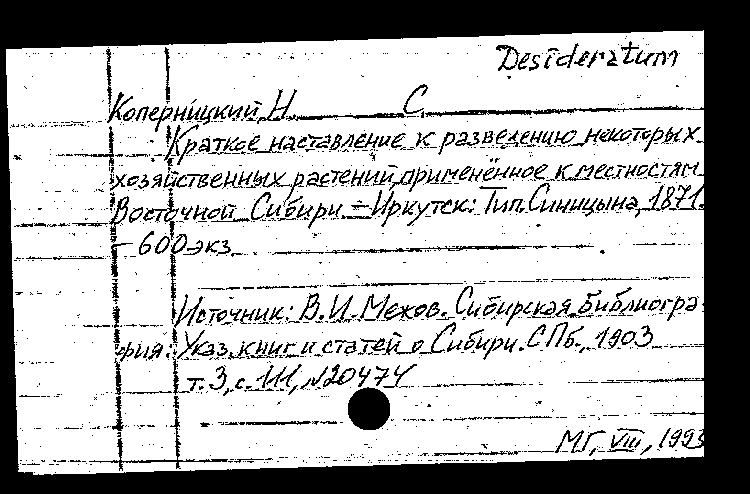 Desideratum
Коперницкий, Н. С.
Краткое наставление к разведению некоторых
хозяйственных растений, применённое к местностям
Восточной Сибири. – Иркутск: Тип. Синицына, 1871.
– 600 экз.
Источник: В.И. Межов. Сибирская библиогра-
фия: Указ. книг и статей о Сибири. СПб., 1903
т. 3, с. 111, №20474
МГ, VIII, 1993